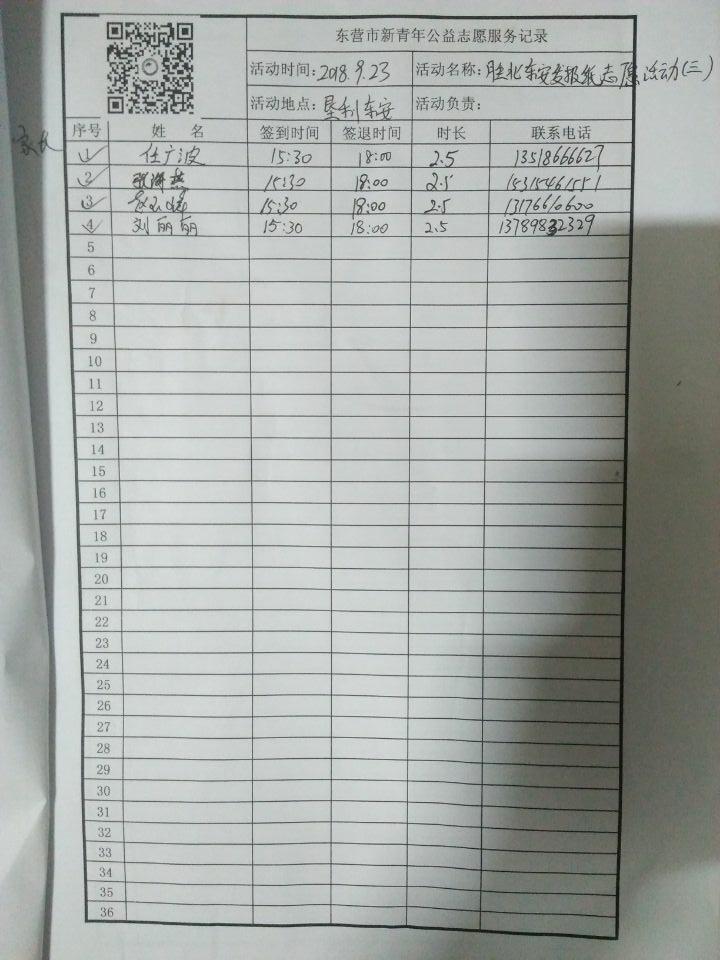 东营市新青年公益志愿服务记录
活动时间：2018.9.23 活动名称：胜北东安卖报纸志愿活动(三)
活动地点：垦利东安 活动负责：
序号 姓 名 签到时间 签退时间 时长 联系电话
家长
1 任广波 15:30 18:00 2.5 13518666627
2 15:30 18:00 2.5 15315461551
3 15:30 18:00 2.5 13176610600
4 刘丽丽 15:30 18:00 2.5 13789832329
5
6
7
8
9
10
11
12
13
14
15
16
17
18
19
20
21
22
23
24
25
26
27
28
29
30
31
32
33
34
35
36